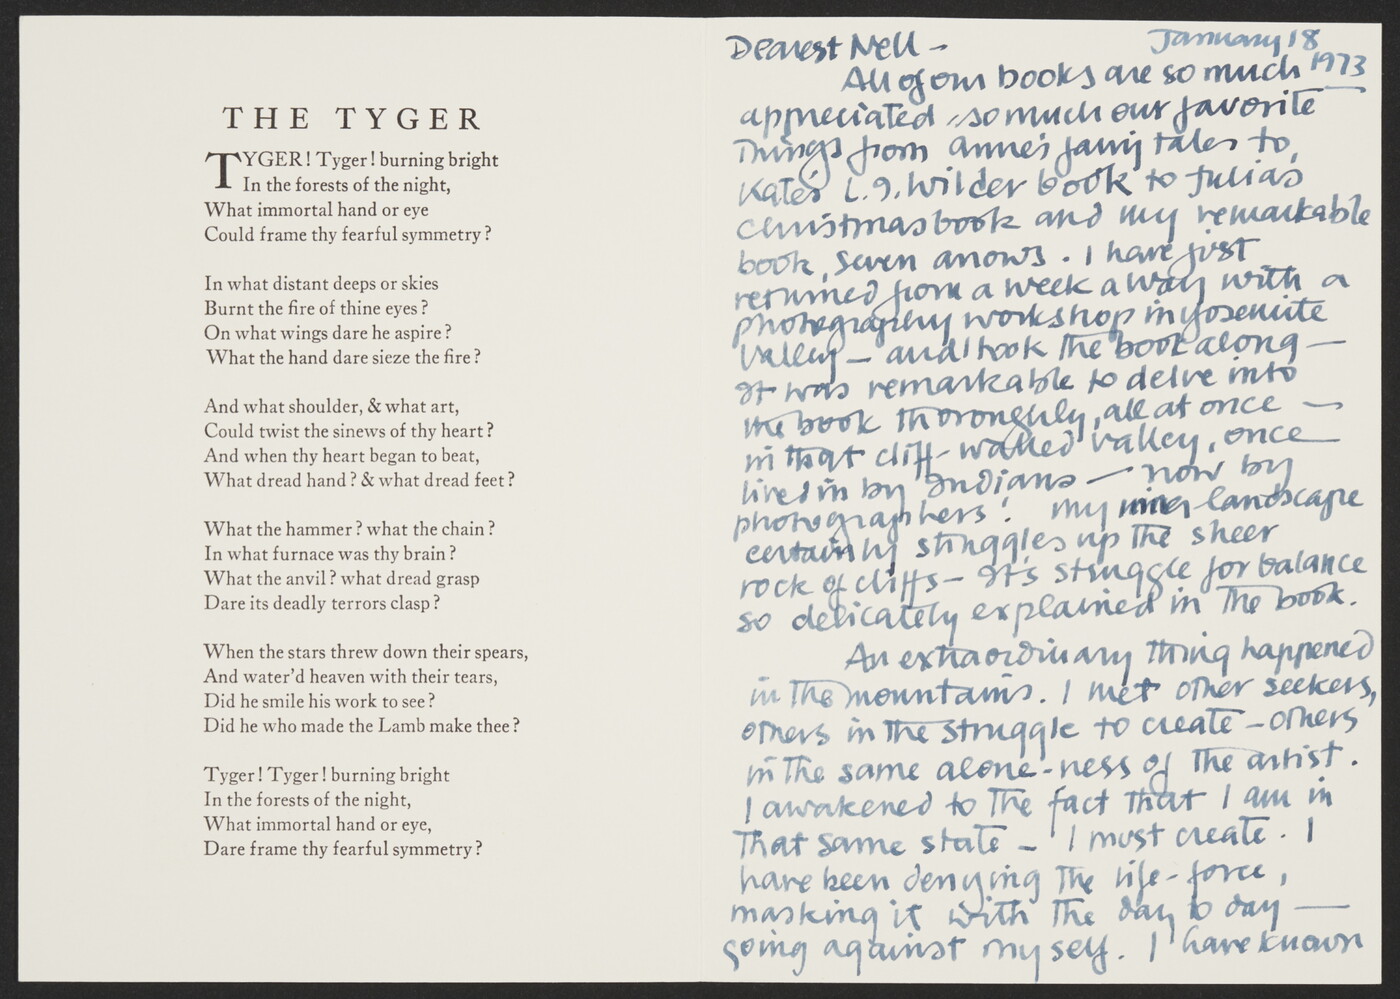 THE TYGER
TYGER! Tyger! burning bright
In the forests of the night,
What immortal hand or eye
Could frame thy fearful symmetry?
In what distant deeps or skies
Burnt the fire of thine eyes?
On what wings dare he aspire?
What the hand dare sieze the fire?
And what shoulder, & what art,
Could twist the sinews of thy heart?
And when thy heart began to beat,
What dread hand? & what dread feet?
What the hammer? what the chain?
In what furnace was thy brain?
What the anvil? what dread grasp
Dare its deadly terrors clasp?
When the stars threw down their spears,
And water'd heaven with their tears,
Did he smile his work to see?
Did he who made the Lamb make thee?
Tyger! Tyger! burning bright
In the forests of the night,
What immortal hand or eye,
Dare frame thy fearful symmetry?
January 18
1973
Dearest Nell –
All of our books are so much
appreciated, so much our favorite
Things from Anne's fairy tales to,
Kate's L.I. Wilder book to Julia's
Christmas book and my remarkable
book, seven arrows. I have just
returned from a week away with a
photography workshop in Yosemite
Valley – and I took the book along –
It was remarkable to delve into
the book thoroughly, all at once –
in that cliff-walled valley, once
lived in by Indians – now by
photographers! My inner-landscape
certainly struggles up the sheer
rock of cliffs – It's struggle for balance
so delicately explained in the book.
An extraordinary thing happened
in the mountains. I met other seekers,
others in the struggle to create – others
in the same alone-ness of the artist.
I awakened to the fact that I am in
that same state – I must create. I
have been denying the life-force,
masking it with the day to day –
going against my self. I have known